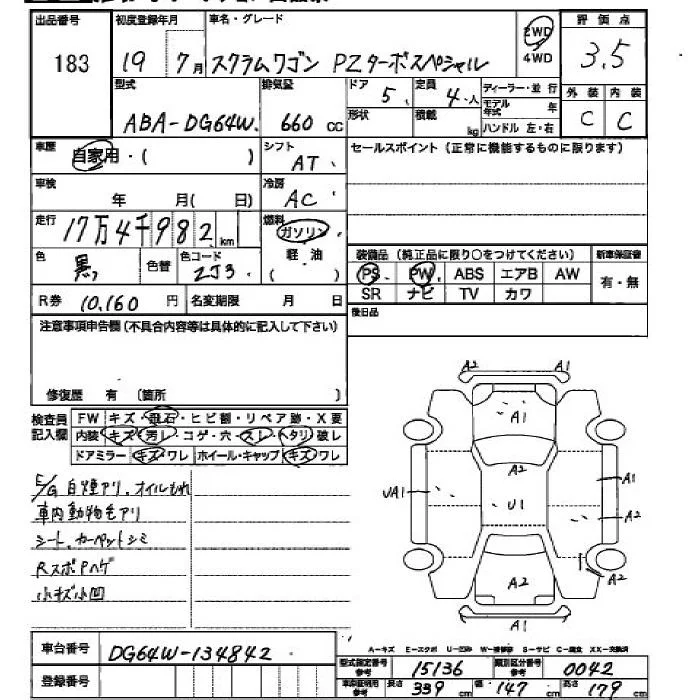 出品番号 初度登録年月 車名・グレード 2WD 評価点
183 19 7月 スクラムワゴン PZターボスペシャル 4WD 3.5
型式 排気量 ドア 5 定員 4人 ディーラー・並行 外装 内装
ABA-DG64W 660 cc 形状 積載 kg モデル年式 年 C C
ハンドル 左・右
車歴 自家用・( ) シフト AT セールスポイント(正常に機能するものに限ります)
車検 年 月(日) 冷房 AC
走行 17万4千982km 燃料 ガソリン
色 黒 色替 色コード ZJ3 軽油 ( ) 装備品(純正品に限り○をつけてください) 新車保証書
PS PW ABS エアB AW 有・無
R券 10,160円 名変期限 月 日 SR ナビ TV カワ
注意事項申告欄(不具合内容等は具体的に記入して下さい) 後日品
修復歴 有 〔箇所 〕
検査員 FW キズ・飛石・ヒビ割・リペア跡・X要
記入欄 内装 キズ・汚レ・コゲ・穴・スレ・ヘタリ・破レ
ドアミラー キズ・ワレ ホイール・キャップ キズ・ワレ
A2 A1
A1
A2 A1
UA1 U1 A2
A2 A2
A2 A1
E/G白煙アリ、オイルもれ
車内動物毛アリ
シート、カーペットシミ
RスポPハゲ
小キズ小凹
車台番号 DG64W-134842
A-キズ E-エクボ U-凹み W-補修跡 S-サビ C-腐食 XX-交換済
型式指定番号 参考 15136 類別区分番号 参考 0042
登録番号 車体証明用 参考 長さ 339 cm 幅 147 cm 高さ 179 cm